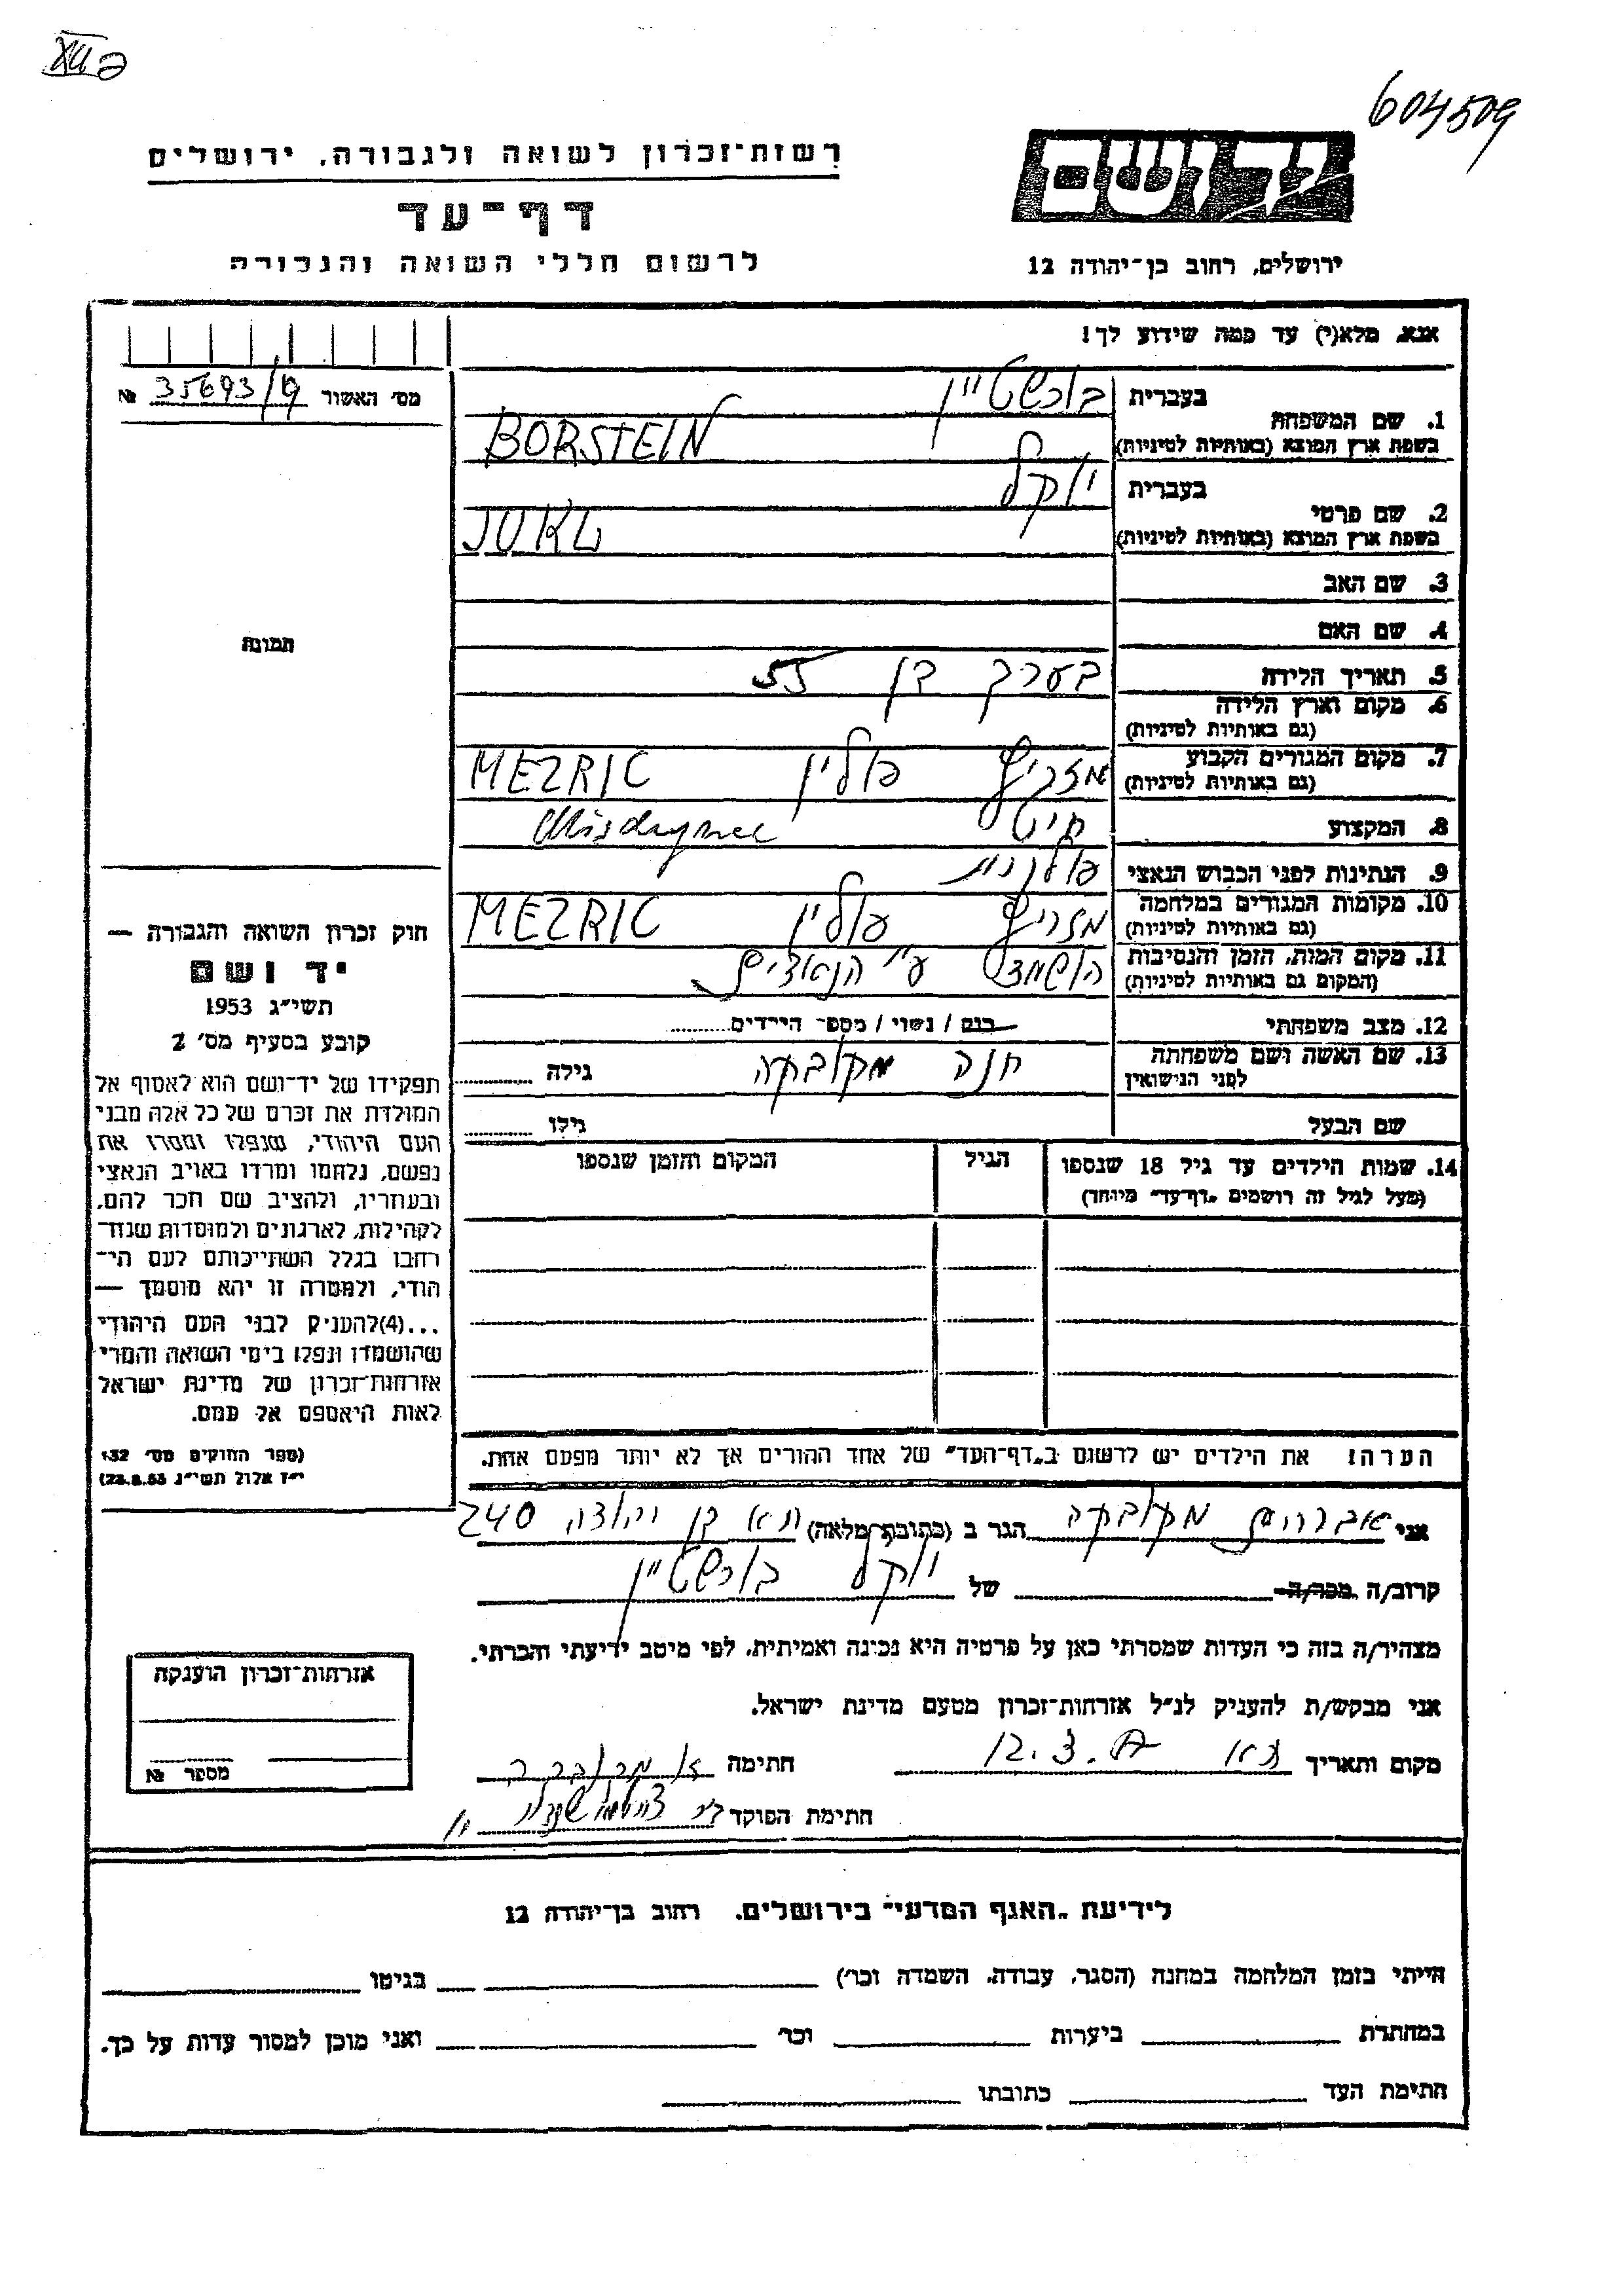 604509
רשות־זכרון לשואה ולגבורה, ירושלים
יד ושם
דף־עד
ירושלים, רחוב בן־יהודה 12
לרשום חללי השואה והגבורה
אנא, מלא(י) עד כמה שידוע לך!
מס׳ האשור 35693/ № 
1. שם המשפחה
בעברית בורשטיין
בשפת ארץ המוצא (באותיות לטיניות) BORSTEIN
2. שם פרטי
בעברית יוקל
בשפת ארץ המוצא (באותיות לטיניות) JUKL
3. שם האב
4. שם האם
תמונה
5. תאריך הלידה בערך בן 55
6. מקום וארץ הלידה
(גם באותיות לטיניות)
7. מקום המגורים הקבוע מזריץ פולין MEZRIC
(גם באותיות לטיניות)
8. המקצוע חייט
9. הנתינות לפני הכבוש הנאצי פולנית
10. מקומות המגורים במלחמה מזריץ פולין MEZRIC
(גם באותיות לטיניות)
11. מקום המות, הזמן והנסיבות הושמד ע״י הנאצים
(המקום גם באותיות לטיניות)
12. מצב משפחתי רווק / נשוי / מספר הילדים
13. שם האשה ושם משפחתה חנה מקובקה גילה
לפני הנישואין
שם הבעל גילו
14. שמות הילדים עד גיל 18 שנספו הגיל המקום והזמן שנספו
(מעל לגיל זה רושמים „דף־עד״ מיוחד)
חוק זכרון השואה והגבורה —
יד ושם
תשי״ג 1953
קובע בסעיף מס׳ 2
תפקידו של יד־ושם הוא לאסוף אל
המולדת את זכרם של כל אלה מבני
העם היהודי, שנפלו ומסרו את
נפשם, נלחמו ומרדו באויב הנאצי
ובעוזריו, ולהציב שם וזכר להם,
לקהילות, לארגונים ולמוסדות שנח־
רבו בגלל השתייכותם לעם הי־
הודי, ולמטרה זו יהא מוסמך —
...(4)להעניק לבני העם היהודי
שהושמדו ונפלו בימי השואה והמרי
אזרחות־זכרון של מדינת ישראל
לאות היאספם אל עמם.
(ספר החוקים מס׳ 132
י״ז אלול תשי״ג 28.8.53)
הערה! את הילדים יש לרשום ב„דף־העד״ של אחד ההורים אך לא יותר מפעם אחת.
אני אברהם מקובקה הגר ב (כתובת מלאה) ת״א בן יהודה 240
קרוב/ה מכר/ה של יוקל בורשטיין
מצהיר/ה בזה כי העדות שמסרתי כאן על פרטיה היא נכונה ואמיתית, לפי מיטב ידיעתי והכרתי.
אני מבקש/ת להעניק לנ״ל אזרחות־זכרון מטעם מדינת ישראל.
מקום ותאריך ת״א 12.3. חתימה
חתימת הפוקד
אזרחות־זכרון הוענקה
מספר №
לידיעת „האגף המדעי״ בירושלים. רחוב בן־יהודה 12
הייתי בזמן המלחמה במחנה (הסגר, עבודה, השמדה וכר׳) בגיטו
במחתרת ביערות וכר׳ ואני מוכן למסור עדות על כך.
חתימת העד כתובתו